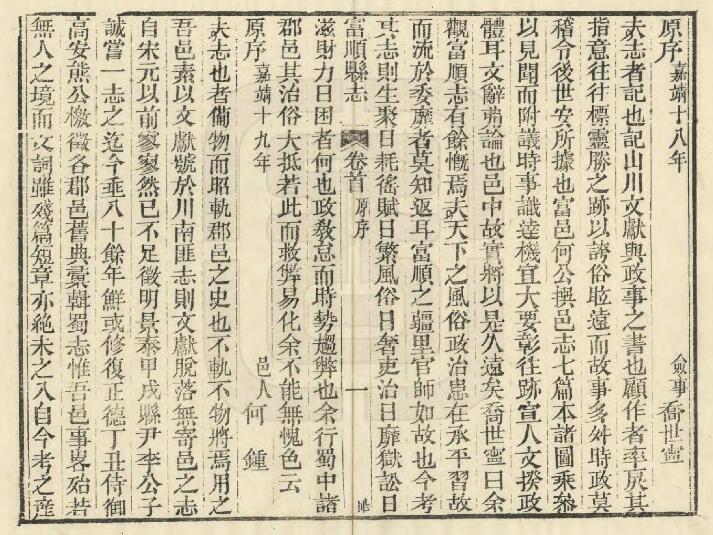 原序 嘉靖十八年 僉事喬世寧
夫志者記也記山川文獻與政事之書也顧作者率戾其
指意往往標靈勝之跡以誇俗眩遠而故事多舛時政莫
稽令後世安所據也富邑何公撰邑志七篇本諸圖乘叅
以見聞而附議時事識達機宜大要彰往跡宣人文揆政
體耳文辭弗論也邑中故實將以是久遠矣喬世寧曰余
觀富順志有餘慨焉夫天下之風俗政治患在承平習故
而流於委靡者莫知返耳富順之疆里官師如故也今考
其志則生聚日耗徭賦日繁風俗日奢吏治日靡獄訟日
富順縣志 卷首 原序 一
滋財力日困者何也政敎怠而時勢趨弊也余行蜀中諸
郡邑其治俗大抵若此而救弊易化余不能無愧色云
原序 嘉靖十九年 邑人何 鍾
夫志也者備物而昭軌郡邑之史也不軌不物將焉用之
吾邑素以文獻號於川南匪志則文獻脫落無寄邑之志
自宋元以前寥寥然已不足徵明景泰甲戌縣尹李公子
誠嘗一志之迄今垂八十餘年鮮或修復正德丁丑侍御
高安熊公檄徵各郡邑舊典彙輯蜀志惟吾邑事畧殆若
無人之境而文詞雖殘篇短章亦絕未之入自今考之產